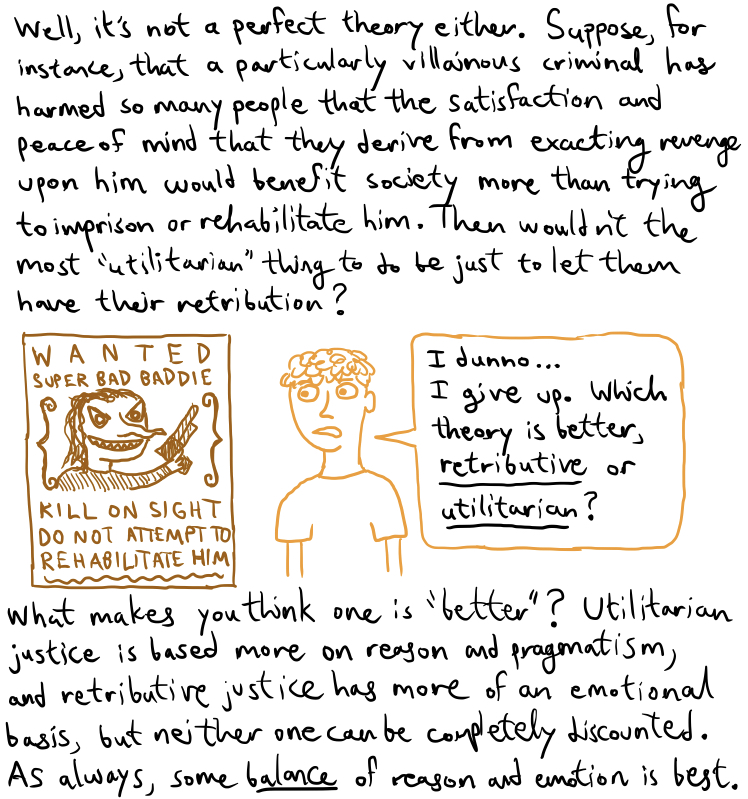 Well, it's not a perfect theory either. Suppose, for
instance, that a particularly villainous criminal has
harmed so many people that the satisfaction and
peace of mind that they derive from exacting revenge
upon him would benefit society more than trying
to imprison or rehabilitate him. Then wouldn't the
most "utilitarian" thing to do be just to let them
have their retribution?
WANTED
SUPER BAD BADDIE
KILL ON SIGHT
DO NOT ATTEMPT TO
REHABILITATE HIM
I dunno...
I give up. Which
theory is better,
retributive or
utilitarian?
What makes you think one is "better"? Utilitarian
justice is based more on reason and pragmatism,
and retributive justice has more of an emotional
basis, but neither one can be completely discounted.
As always, some balance of reason and emotion is best.